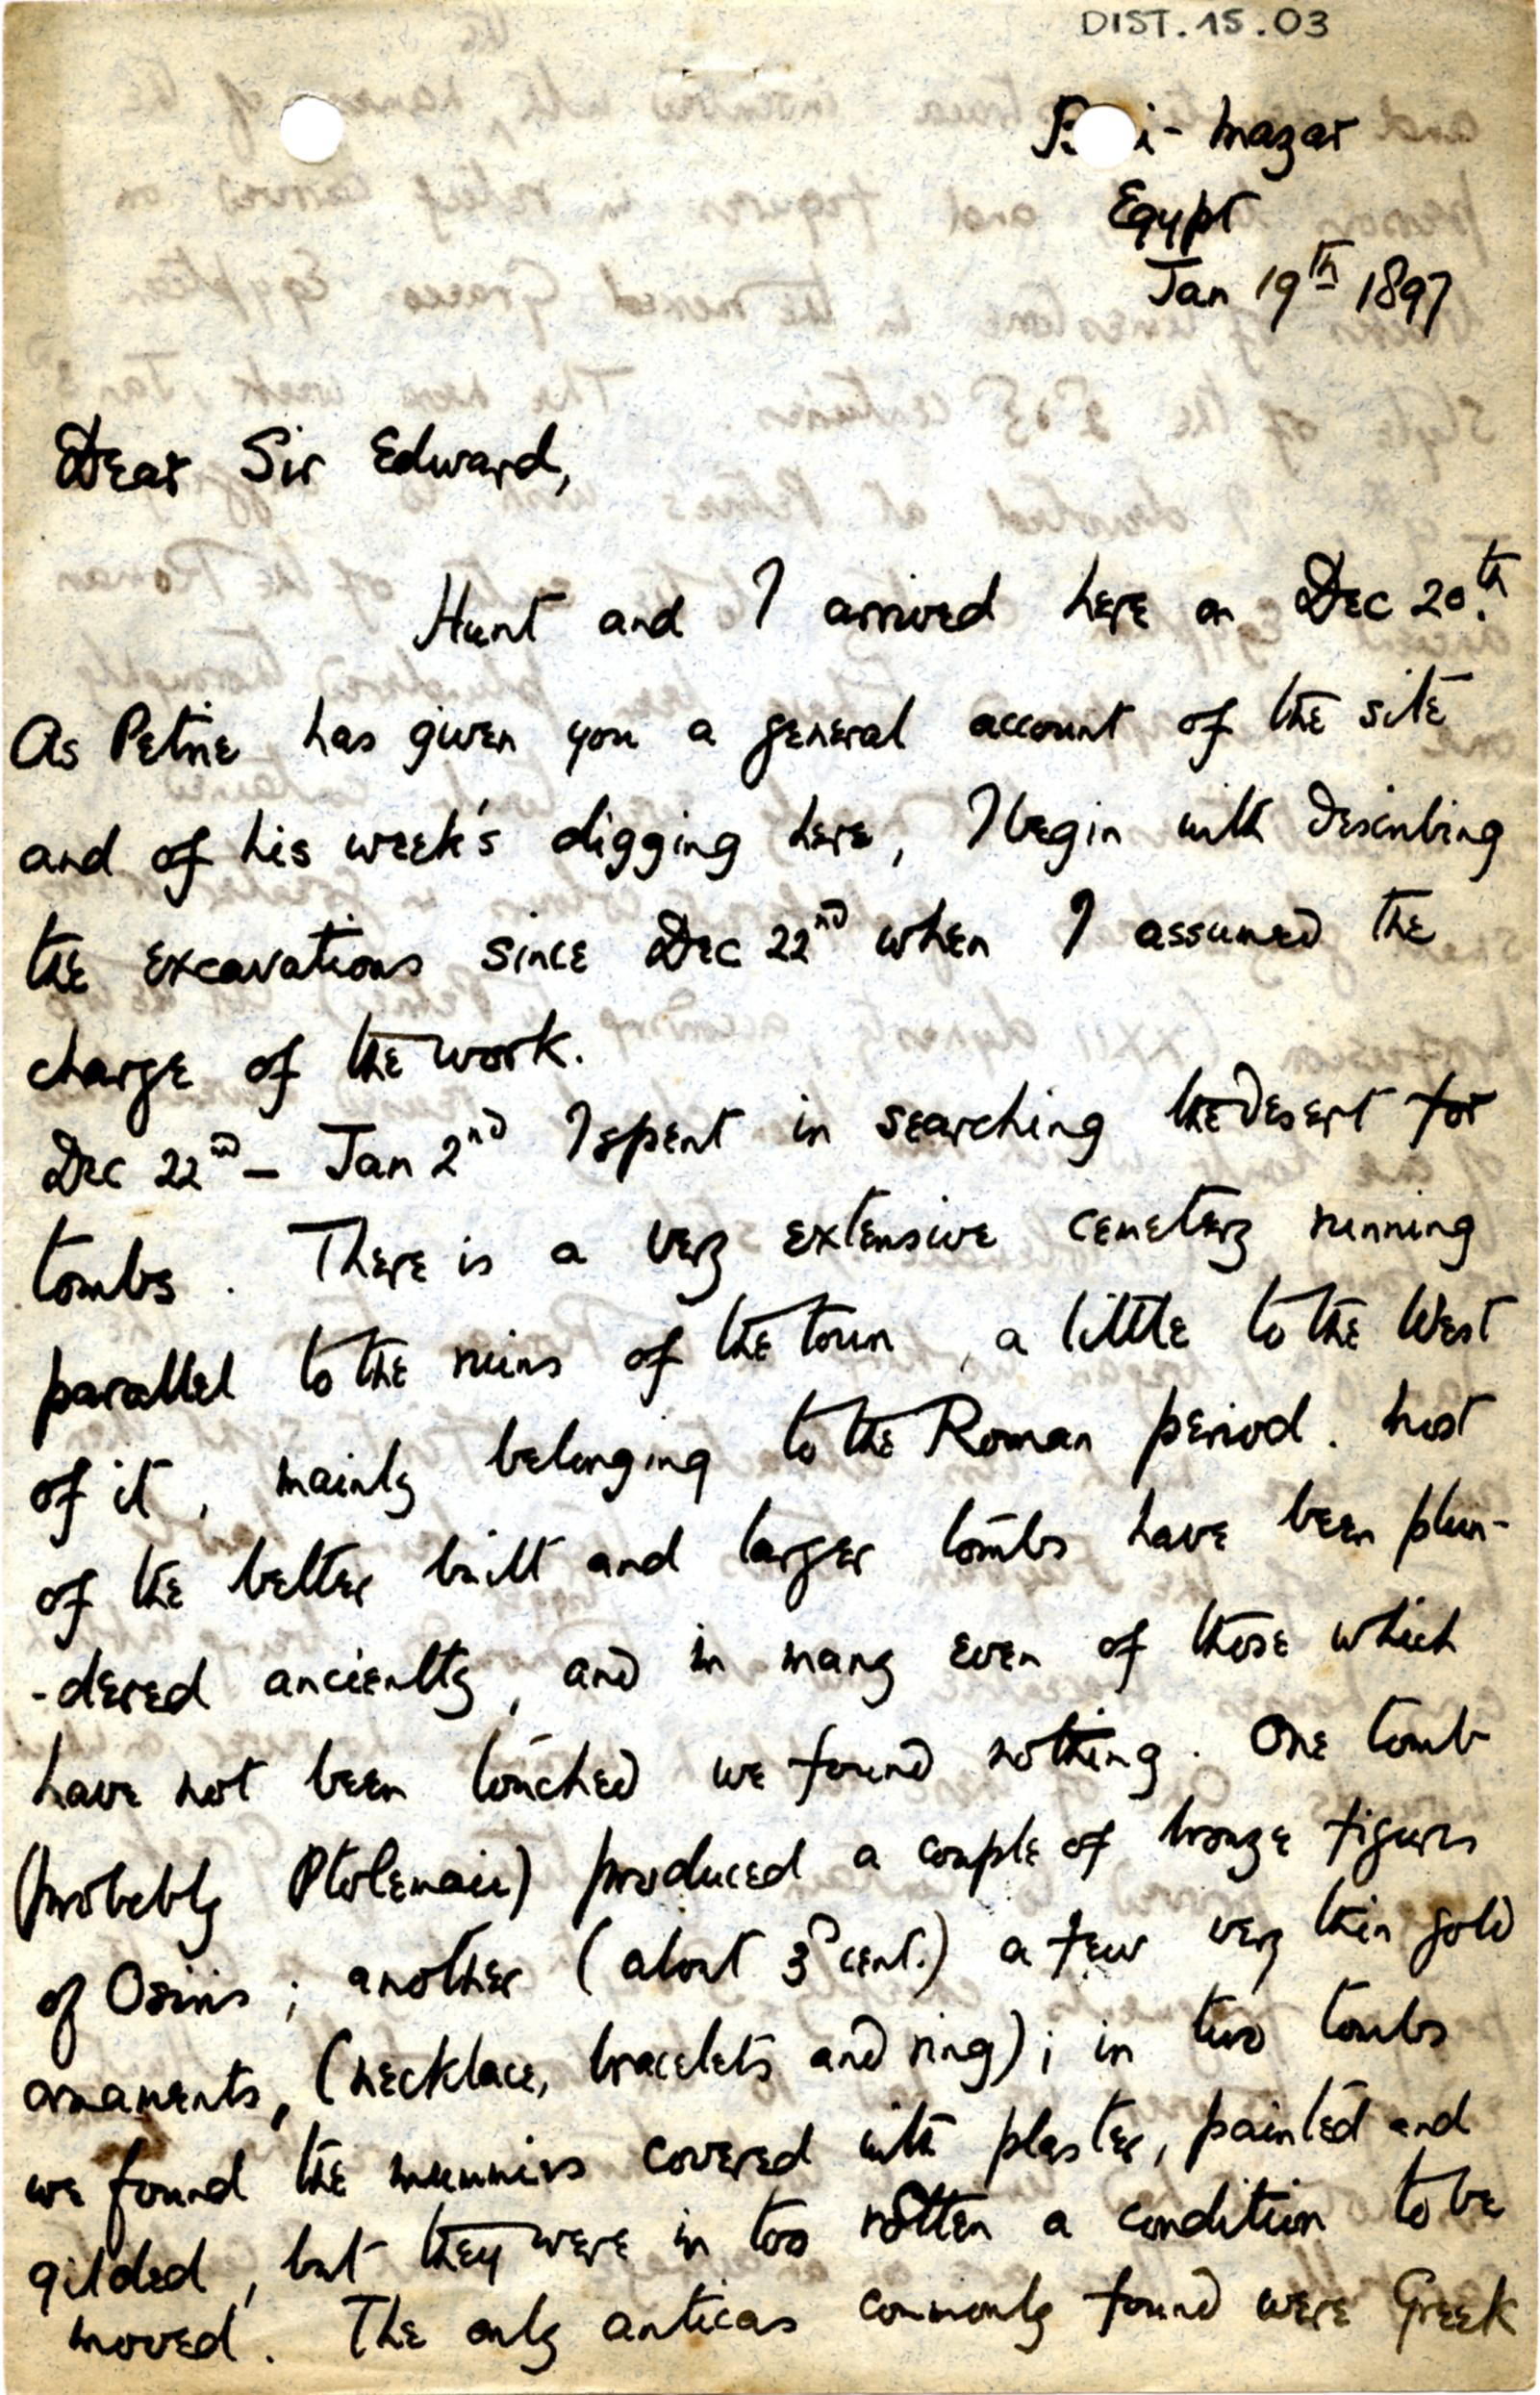 DIST.15.03
B i-Mazar
Egypt
Jan 19th 1897
Dear Sir Edward,
Hunt and I arrived here on Dec 20th.
As Petrie has given you a general account of the site
and of his week's digging here, I begin with describing
the excavations since Dec 22nd when I assumed the
charge of the work.
Dec 22nd – Jan 2nd I spent in searching the desert for
tombs. There is a very extensive cemetery running
parallel to the ruins of the town, a little to the West
of it, mainly belonging to the Roman period. Most
of the better built and larger tombs have been plun-
-dered anciently, and in many even of those which
have not been touched we found nothing. One tomb
(probably Ptolemaic) produced a couple of bronze figures
of Osiris; another (about 3d cent.) a few very thin gold
ornaments, (necklace, bracelets and ring); in two tombs
we found the mummies covered with plaster, painted and
gilded, but they were in too rotten a condition to be
moved. The only anticas commonly found were Greek